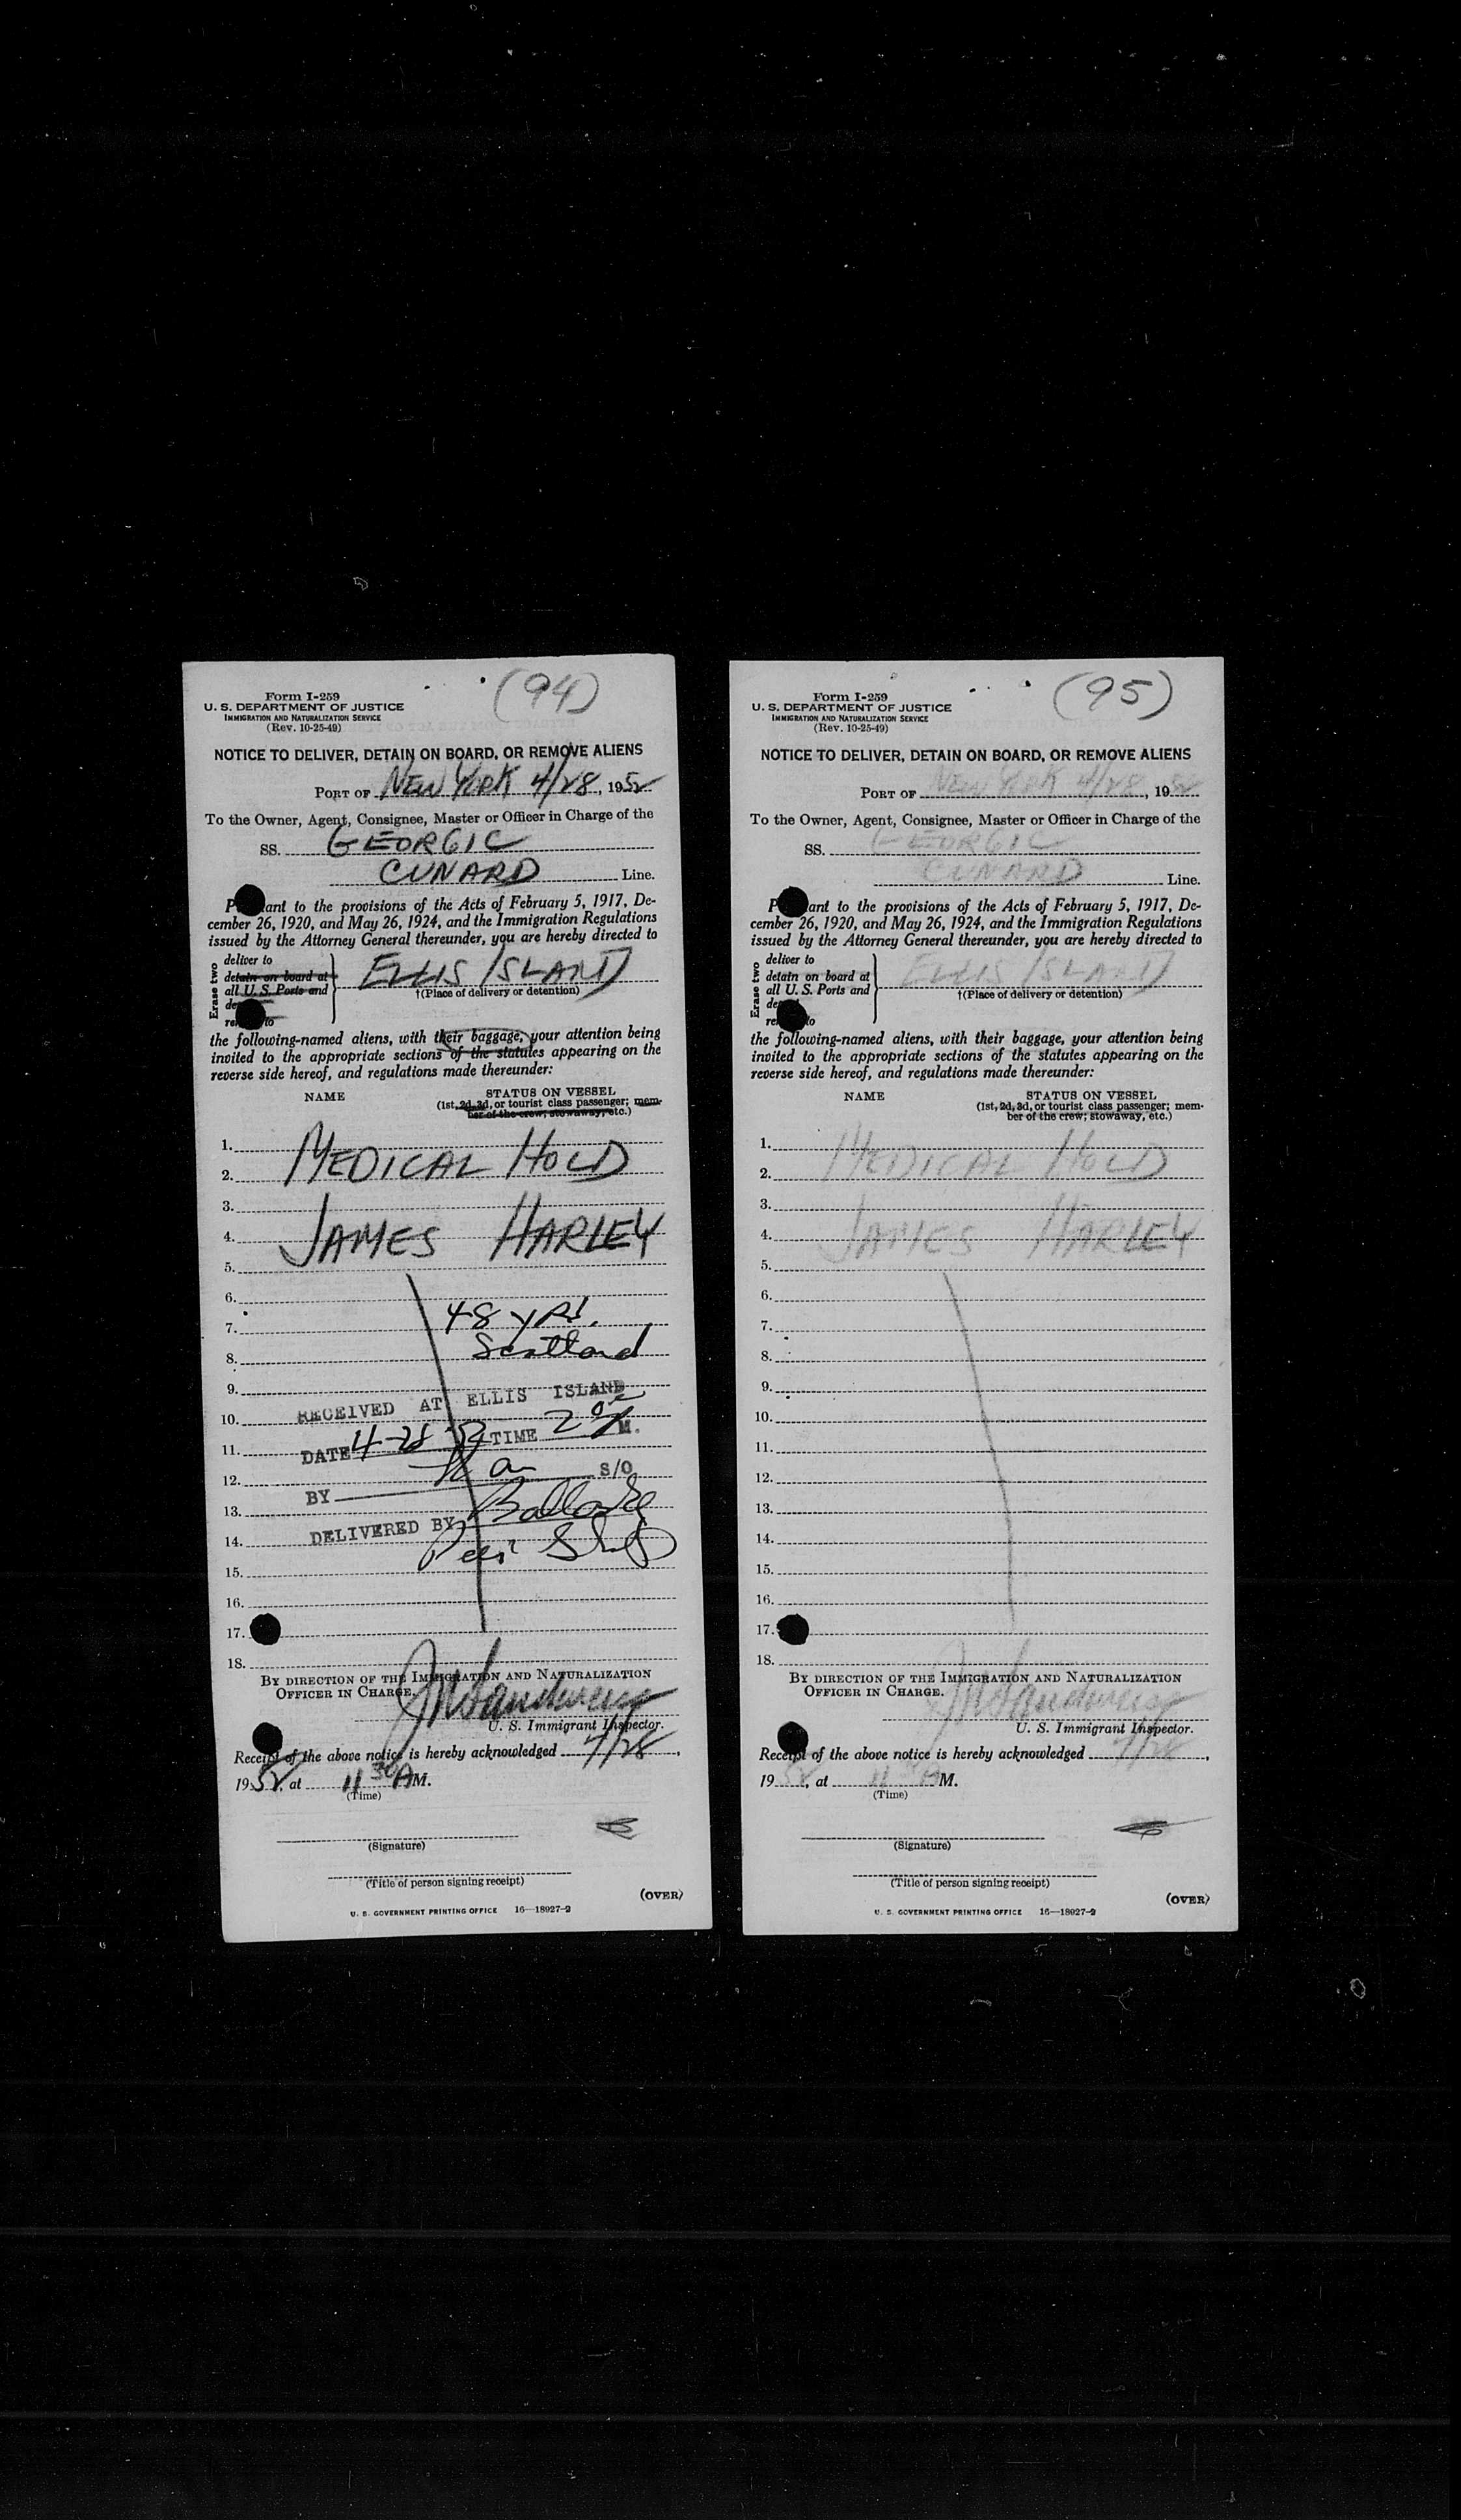 (94)
Form I-259
U. S. DEPARTMENT OF JUSTICE
IMMIGRATION AND NATURALIZATION SERVICE
(Rev. 10-25-49)
NOTICE TO DELIVER, DETAIN ON BOARD, OR REMOVE ALIENS
PORT OF NEW YORK 4/28, 1952
To the Owner, Agent, Consignee, Master or Officer in Charge of the
SS. GEORGIC
CUNARD Line.
P ant to the provisions of the Acts of February 5, 1917, De-
cember 26, 1920, and May 26, 1924, and the Immigration Regulations
issued by the Attorney General thereunder, you are hereby directed to
Erase two
deliver to
detain on board at
all U. S. Ports and
de
re to
ELLIS ISLAND
†(Place of delivery or detention)
the following-named aliens, with their baggage, your attention being
invited to the appropriate sections of the statutes appearing on the
reverse side hereof, and regulations made thereunder:
NAME
STATUS ON VESSEL
(1st, 2d, 3d, or tourist class passenger; mem-
ber of the crew; stowaway, etc.)
1.
2. MEDICAL HOLD
3.
4. JAMES HARLEY
5.
6.
7. 48 yrs.
8. Scotland
9.
RECEIVED AT ELLIS ISLAND
10.
11. DATE 4-28-52 TIME 2 M.
12.
BY S/O
13.
DELIVERED BY
14.
15.
16.
17.
18.
BY DIRECTION OF THE IMMIGRATION AND NATURALIZATION
OFFICER IN CHARGE.
U. S. Immigrant Inspector.
Receipt of the above notice is hereby acknowledged 4/28,
1952, at 11 30 AM.
(Time)
(Signature)
(Title of person signing receipt)
(OVER)
U. S. GOVERNMENT PRINTING OFFICE 16—18927-2
(95)
Form I-259
U. S. DEPARTMENT OF JUSTICE
IMMIGRATION AND NATURALIZATION SERVICE
(Rev. 10-25-49)
NOTICE TO DELIVER, DETAIN ON BOARD, OR REMOVE ALIENS
PORT OF NEW YORK 4/28, 1952
To the Owner, Agent, Consignee, Master or Officer in Charge of the
SS. GEORGIC
CUNARD Line.
P ant to the provisions of the Acts of February 5, 1917, De-
cember 26, 1920, and May 26, 1924, and the Immigration Regulations
issued by the Attorney General thereunder, you are hereby directed to
Erase two
deliver to
detain on board at
all U. S. Ports and
de
re to
ELLIS ISLAND
†(Place of delivery or detention)
the following-named aliens, with their baggage, your attention being
invited to the appropriate sections of the statutes appearing on the
reverse side hereof, and regulations made thereunder:
NAME
STATUS ON VESSEL
(1st, 2d, 3d, or tourist class passenger; mem-
ber of the crew; stowaway, etc.)
1.
2. MEDICAL HOLD
3.
4. JAMES HARLEY
5.
6.
7.
8.
9.
10.
11.
12.
13.
14.
15.
16.
17.
18.
BY DIRECTION OF THE IMMIGRATION AND NATURALIZATION
OFFICER IN CHARGE.
U. S. Immigrant Inspector.
Receipt of the above notice is hereby acknowledged 4/28,
1952, at 11 30 AM.
(Time)
(Signature)
(Title of person signing receipt)
(OVER)
U. S. GOVERNMENT PRINTING OFFICE 16—18927-2